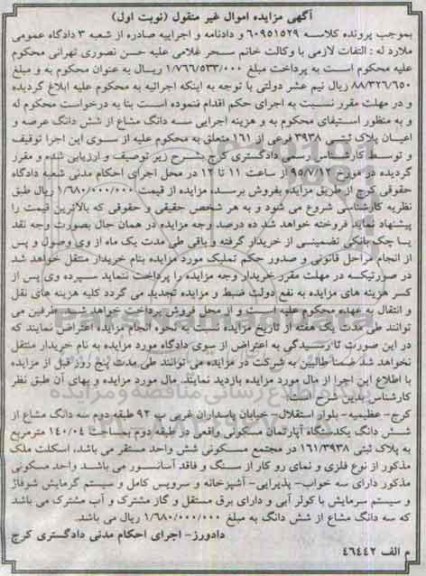 آگهی مزایده اموال غیر منقول (نوبت اول)
بموجب پرونده کلاسه ۶۰۹۵۱۵۲۹ و دادنامه و اجراییه صادره از شعبه ۳ دادگاه عمومی
ملارد له : التفات لازمی با وکالت خانم سحر غلامی علیه حسن نصوری تهرانی محکوم
علیه محکوم است به پرداخت مبلغ ۱/۷۶۶/۵۳۳/۰۰۰ ریال به عنوان محکوم به و مبلغ
۸۸/۳۲۶/۶۵۰ ریال نیم عشر دولتی با توجه به اینکه اجرائیه به محکوم علیه ابلاغ گردیده
و در مهلت مقرر نسبت به اجرای حکم اقدام ننموده است بنا به درخواست محکوم له
و به منظور استیفای محکوم به و هزینه اجرایی سه دانگ مشاع از شش دانگ عرصه و
اعیان پلاک ثبتی ۳۹۳۸ فرعی از ۱۶۱ متعلق به محکوم علیه از سوی این اجرا توقیف
و توسط کارشناس رسمی دادگستری کرج بشرح زیر توصیف و ارزیابی شده و مقرر
گردیده در مورخ ۹۵/۷/۱۲ از ساعت ۱۱ تا ۱۲ در محل اجرای احکام مدنی شعبه دادگاه
حقوقی کرج از طریق مزایده بفروش برسد، مزایده از قیمت ۱/۶۸۰/۰۰۰/۰۰۰ ریال طبق
نظریه کارشناسی شروع می شود و به هر شخص حقیقی و حقوقی که بالاترین قیمت را
پیشنهاد نماید فروخته خواهد شد ده درصد وجه مزایده در همان حال بصورت وجه نقد
یا چک بانکی تضمینی از خریدار گرفته و باقی طی مدت یک ماه از وی وصول و پس
از انجام مراحل قانونی و صدور حکم تملیک مورد مزایده بنام خریدار منتقل خواهد شد
در صورتیکه در مهلت مقرر خریدار وجه مزایده را پرداخت ننماید سپرده وی پس از
کسر هزینه های مزایده به نفع دولت ضبط و مزایده تجدید می گردد کلیه هزینه های نقل
و انتقال به عهده محکوم علیه است و از محل فروش پرداخت خواهد شد. طرفین می
توانند طی مدت یک هفته از تاریخ مزایده نسبت به نحوه انجام مزایده اعتراض نمایند که
در این صورت تا رسیدگی به اعتراض از سوی دادگاه مورد مزایده به نام خریدار منتقل
نخواهد شد ضمنا طالبین به شرکت در مزایده می توانند طی مدت پنج روز قبل از مزایده
با اطلاع این اجرا از مال مورد مزایده بازدید نمایند. مال مورد مزایده و بهای آن طبق نظر
کارشناس بدین شرح است:
کرج- عظیمیه- بلوار استقلال- خیابان پاسداران غربی پ ۹۲ طبقه دوم سه دانگ مشاع از
شش دانگ یکدستگاه آپارتمان مسکونی واقعی در طبقه دوم به مساحت ۱۴۰/۰۴ مترمربع
به پلاک ثبتی ۱۶۱/۳۹۳۸ در مجتمع مسکونی شش واحد مستقر می باشد، اسکلت ملک
مذکور از نوع فلزی و نمای رو کار از سنگ و فاقد آسانسور می باشد. واحد مسکونی
مذکور دارای سه خواب- پذیرایی- آشپزخانه و سرویس کامل و سیستم گرمایش شوفاژ
و سیستم سرمایش با کولر آبی و دارای برق مستقل و گاز مشترک و آب مشترک می باشد
که سه دانگ مشاع از شش دانگ به مبلغ ۱/۶۸۰/۰۰۰/۰۰۰ ریال می باشد.
دادورز- اجرای احکام مدنی دادگستری کرج
م الف ۴۶۴۴۲